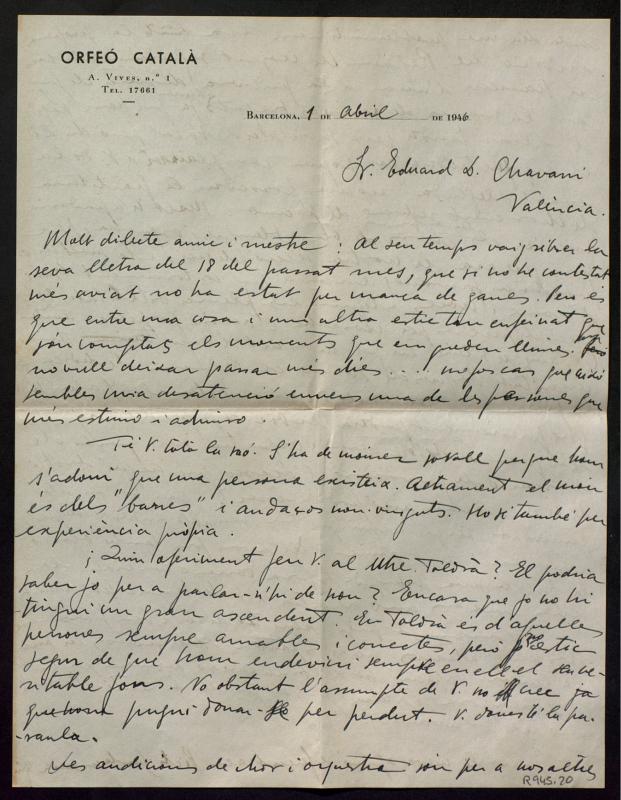 ORFEÓ CATALÀ
A. Vives, n.º 1
Tel. 17661
Barcelona, 1 de abril de 1946
Sr. Eduard L. Chavarri
València.
Molt dilecte amic i mestre: Al seu temps vaig rebre la
seva lletra del 18 del passat mes, que si no he contestat
més aviat no ha estat per manca de ganes. Pero és
que entre una cosa i una altra estic tan enfeinat que
són comptats els moments que em queden lliures.
no vull deixar passar més dies... no fos cas que això
sembles una desatenció envers una de les persones que
més estimo i admiro.
Té V. tota la raó. S'ha de moure soroll perque hom
s'adoni que una persona existeix. Actualment el món
és dels "barres" i Ho sé també per
experiència pròpia.
¡Quin oferiment feu V. al Mtre. Toldrà? El podria
saber jo per a parlar-n'hi de nou? Encara que jo no hi
tingui un gran ascendent. En Toldrà és d'aquelles
persones sempre amables i correctes, però no estic
segur de que hom endevini sempre en ell el seu ve-
ritable fons. No obstant l'assumpte de V. no crec ja
que hom pugui donar-lo per perdut. V. donès té la pa-
-raula.
Les audicions de chor i orquestra són per a nosaltres
R945.20